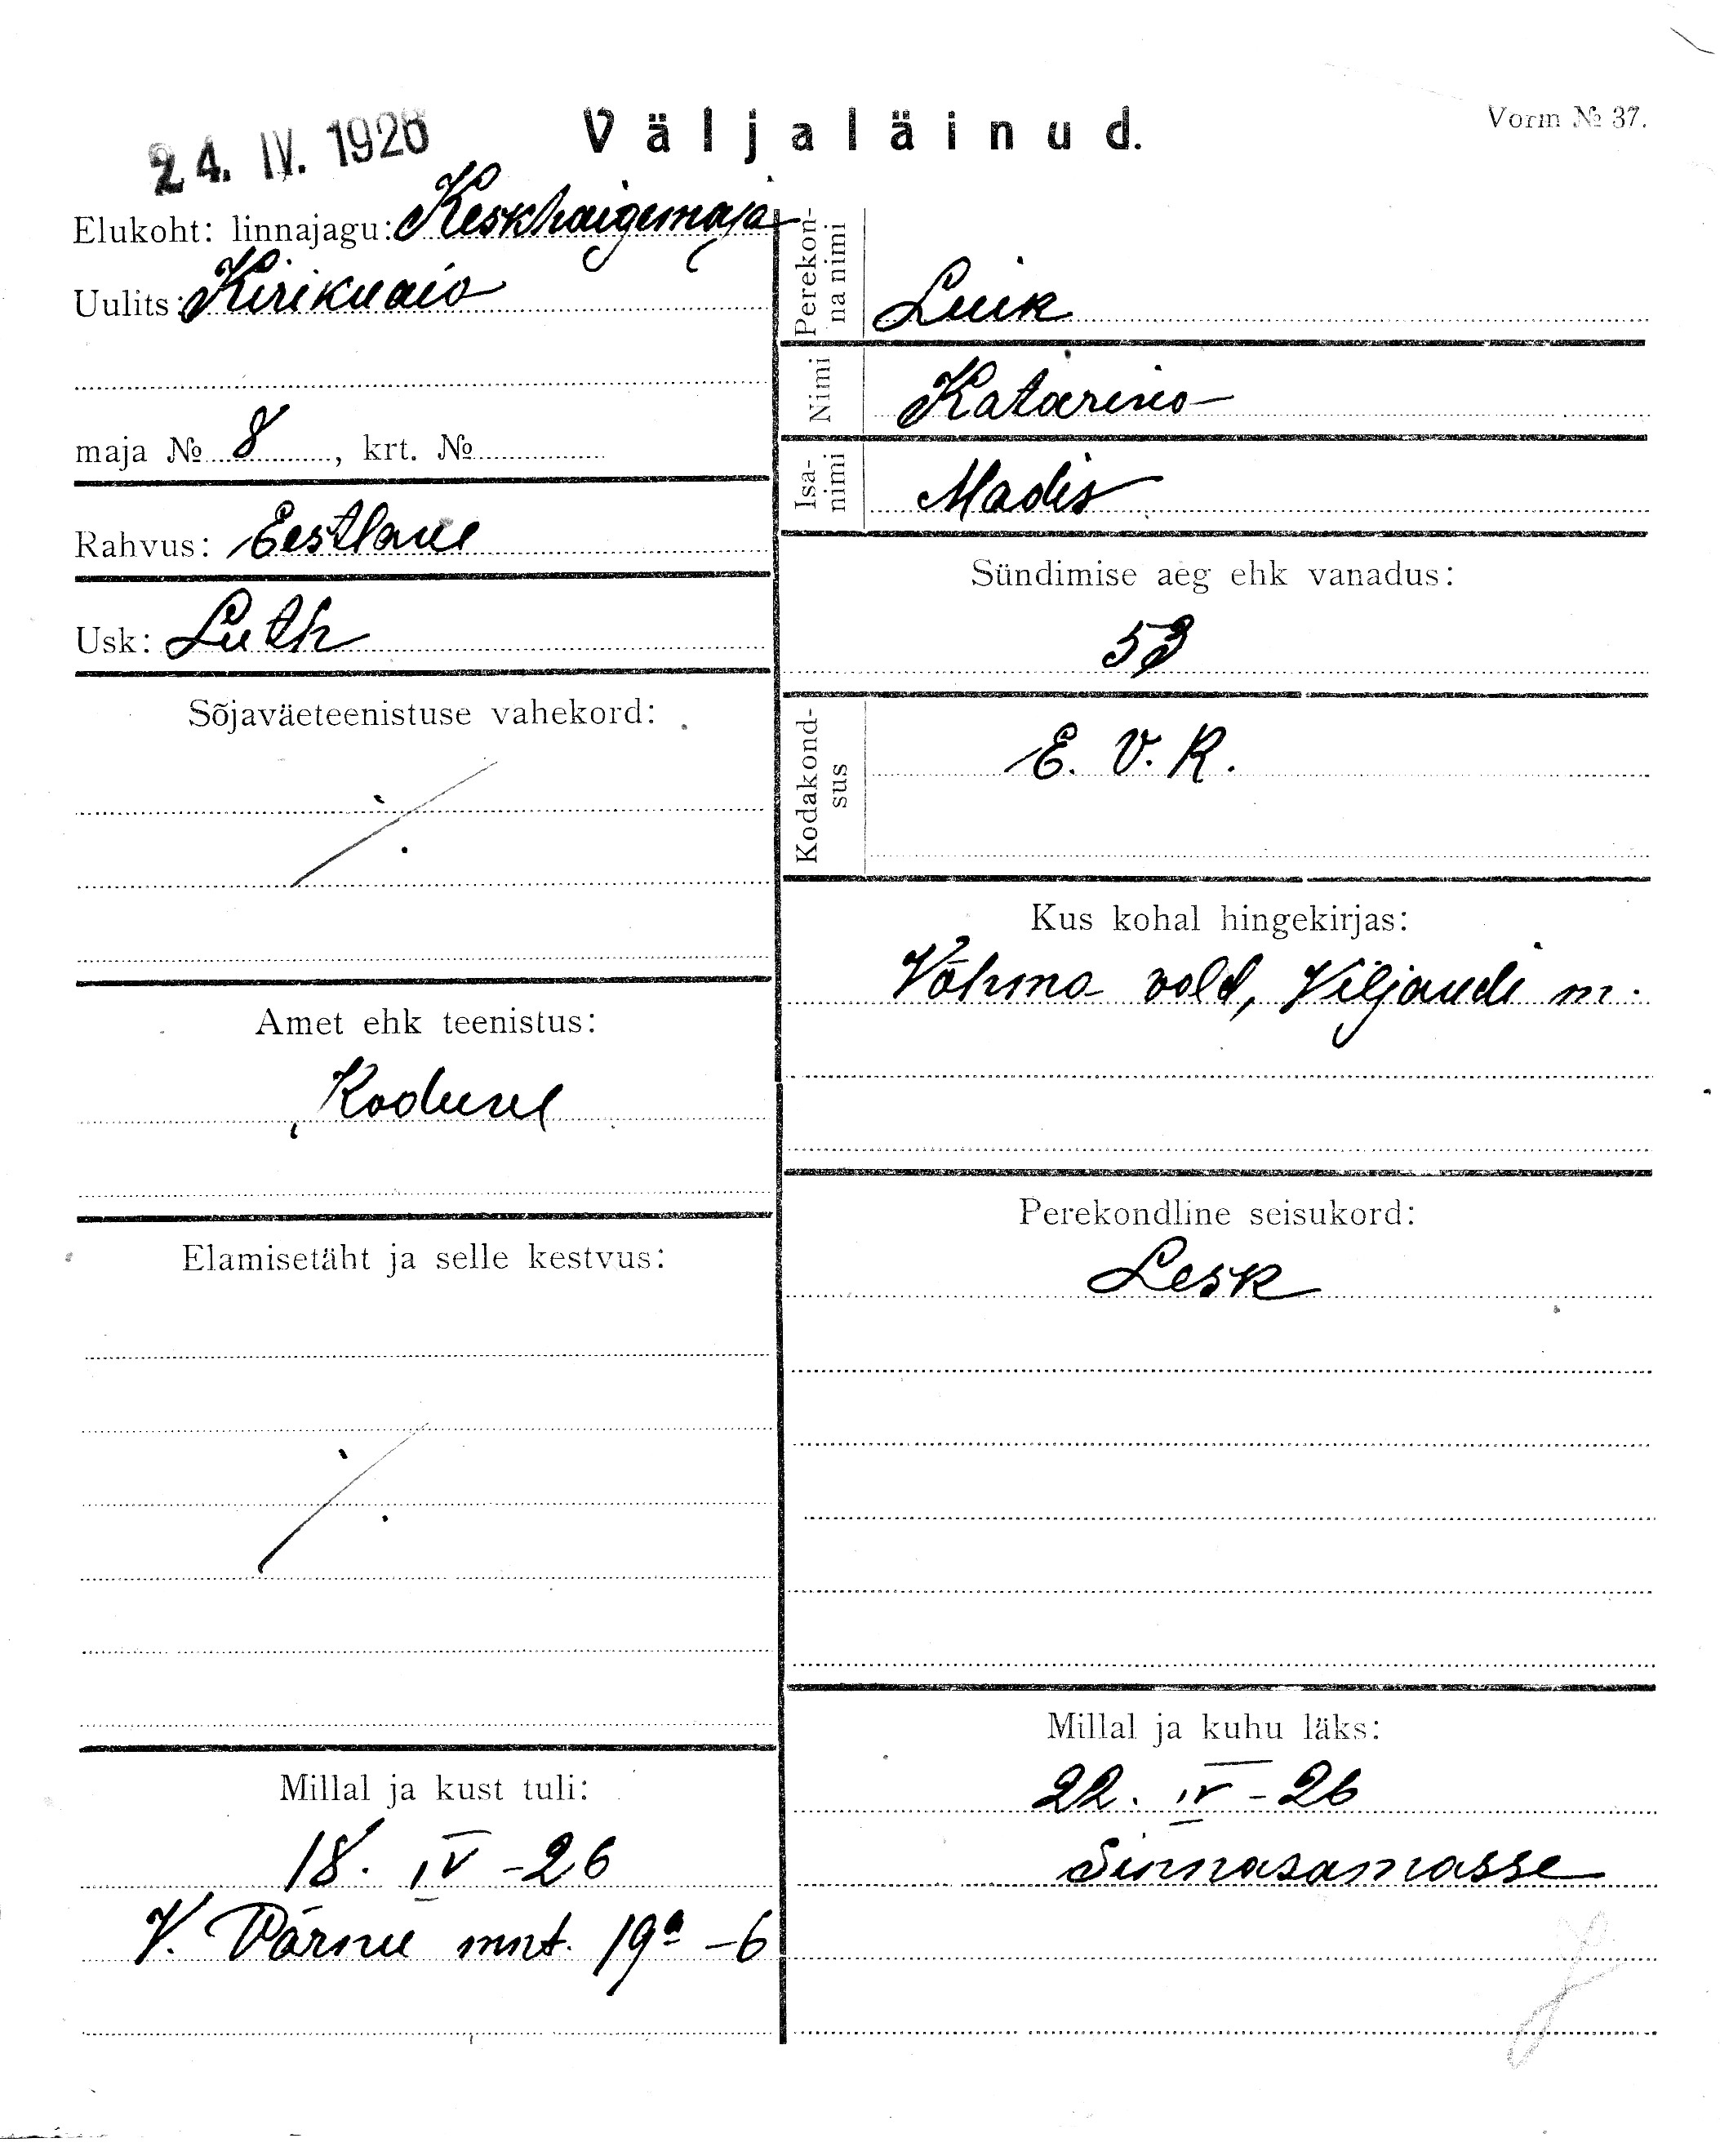 24. IV. 1926
Väljaläinud.
Vorm № 37.
Elukoht: linnajagu: Keskhaigemaja
Uulits: Kirikuaia
maja № 8, krt. №
Rahvus: Eestlane
Usk: Luth
Sõjaväeteenistuse vahekord:
Amet ehk teenistus:
Kodune
Elamisetäht ja selle kestvus:
Millal ja kust tuli:
18. IV - 26
V. Pärnu mnt. 19a - 6
Perekonna nimi Luik
Nimi Katarina
Isanimi Madis
Sündimise aeg ehk vanadus:
53
Kodakondsus E. V. R.
Kus kohal hingekirjas:
Võhma vald, Viljandi m.
Perekondline seisukord:
Lesk
Millal ja kuhu läks:
22. IV - 26
Sinnasamasse